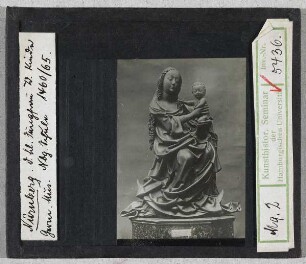 Nürnberg. d. hl. Jungfrau m. Kinde
Germ. Mus. Nbg. Schule 1460/65.
Kunsthistor. Seminar
der
Hamburgischen Universität
Inv. Nr.
5436.